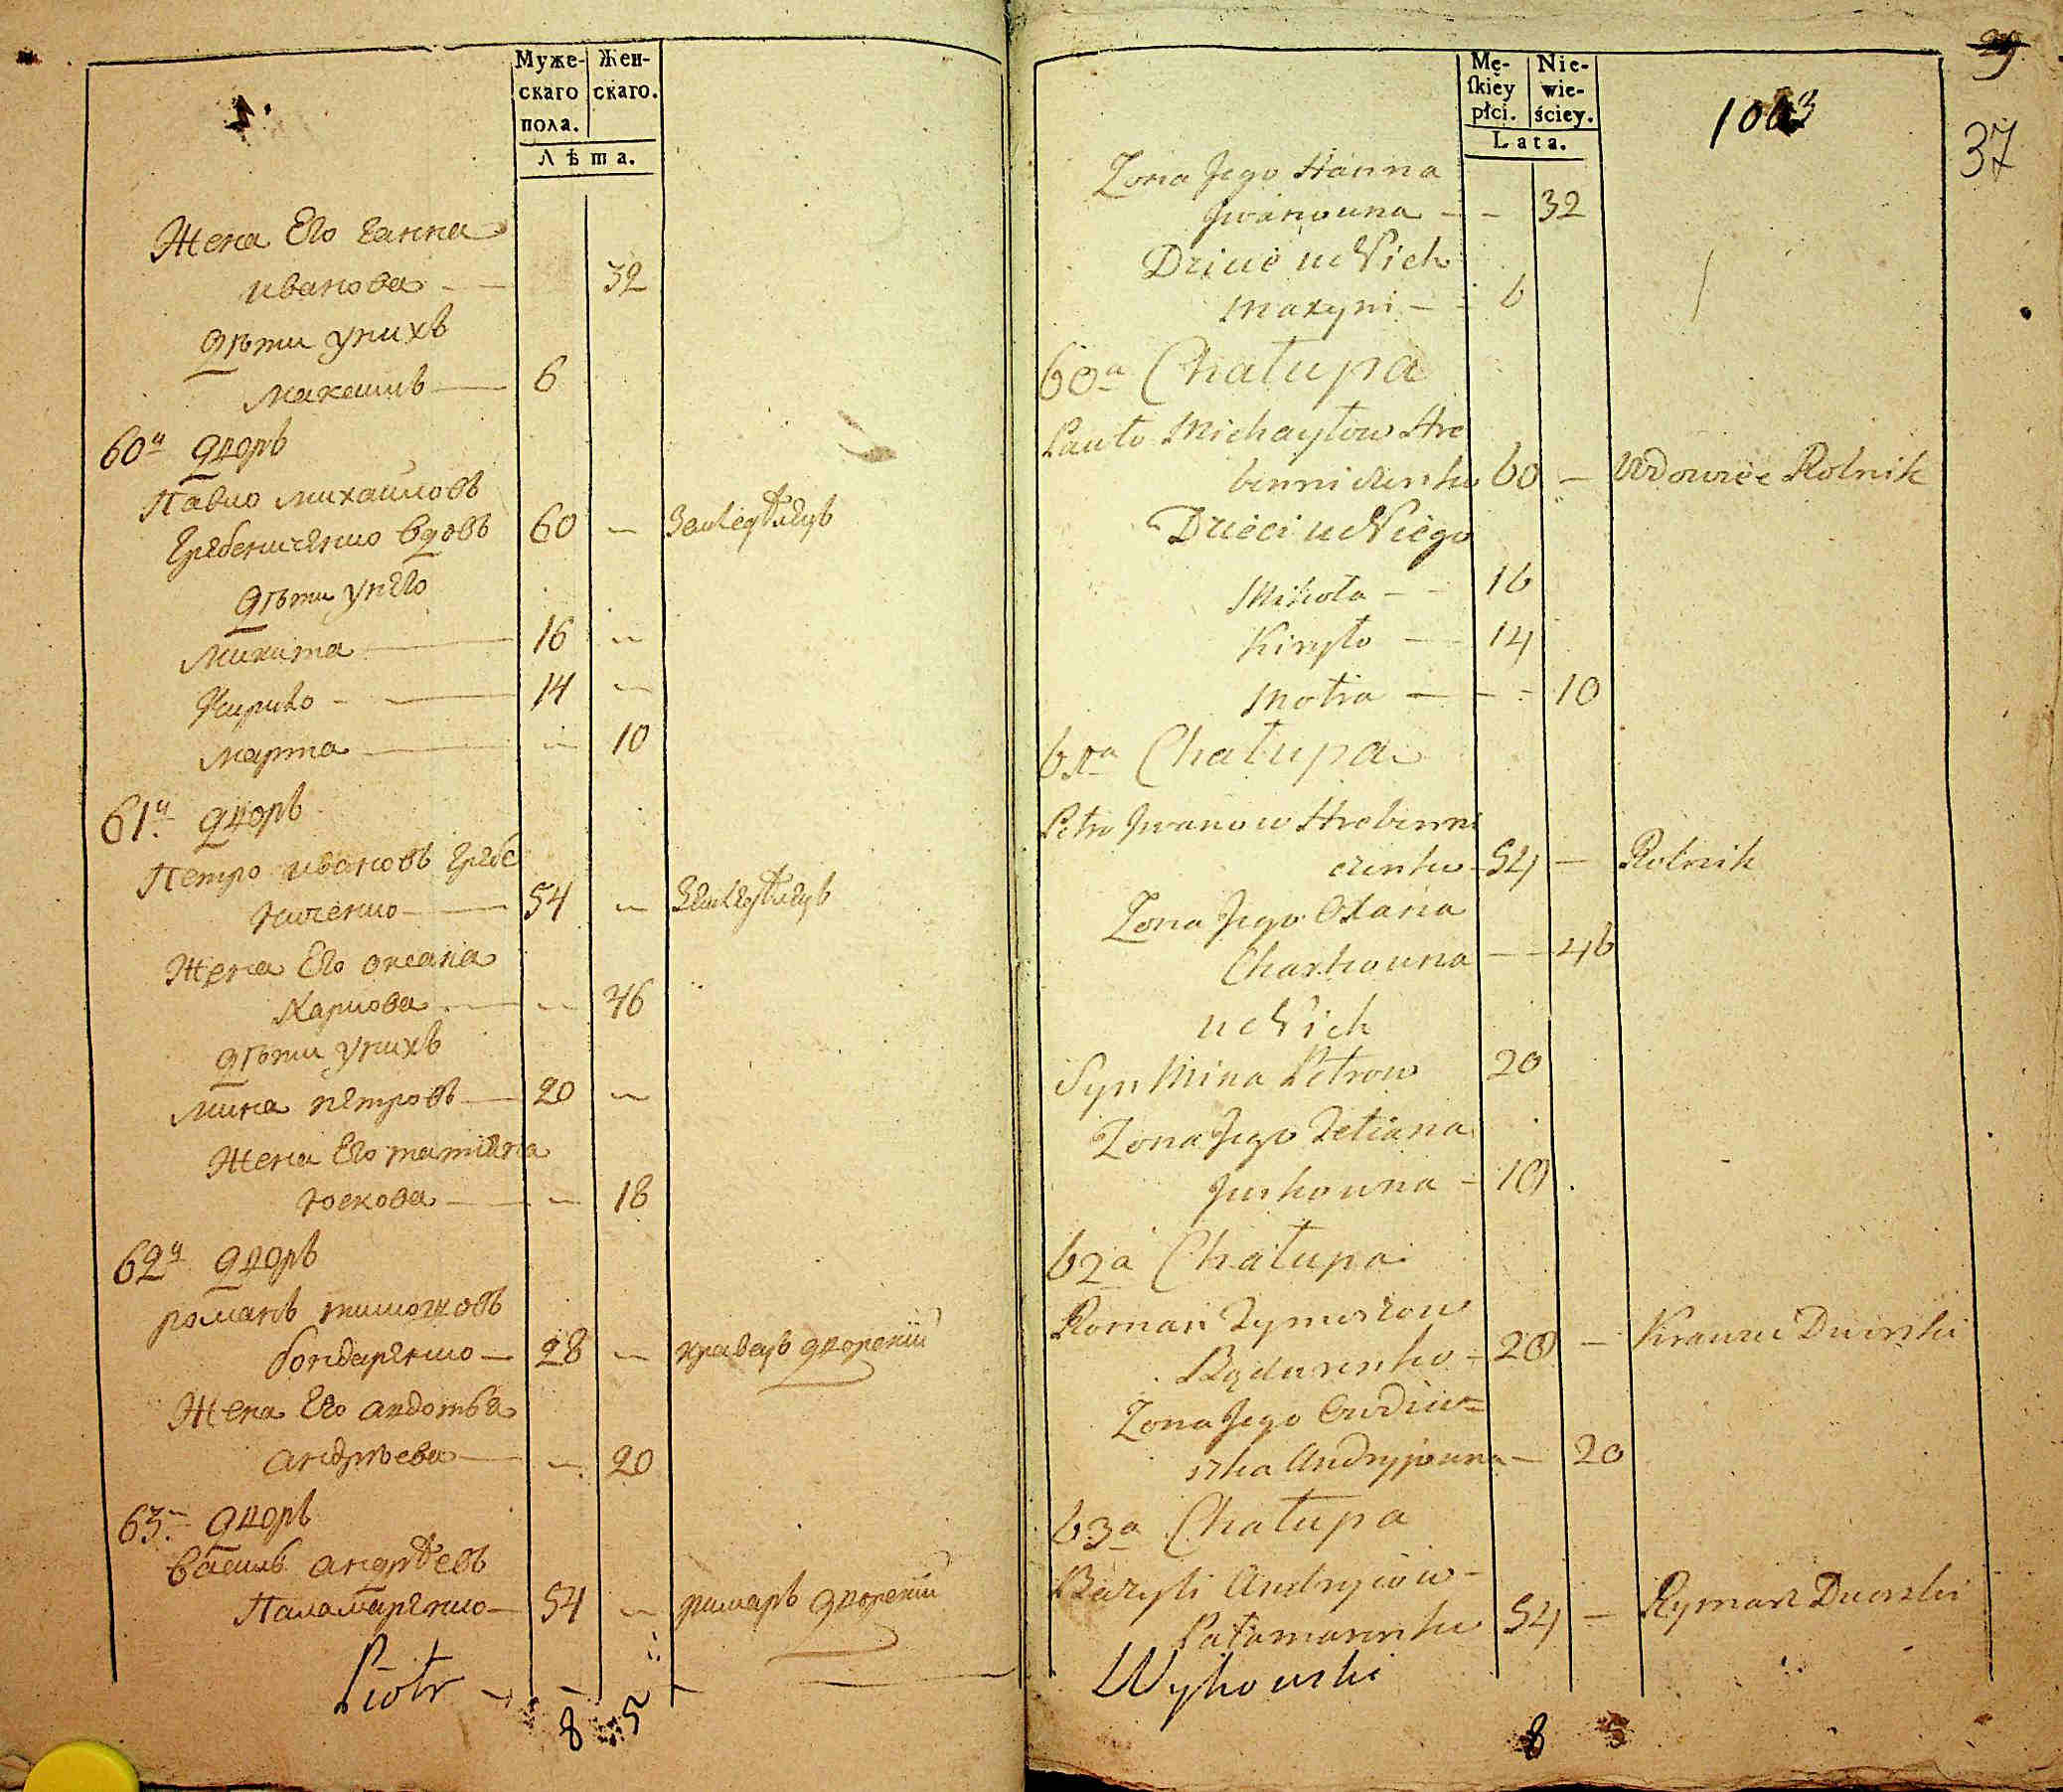 Муже-
скаго
пола.
Жен-
скаго.
Лѣта.
Жена Его ганна
иванова - - 32
дѣти унихъ
Макашъ - 6
60й дворъ
Павло михаиловъ
Гребениченко вдовъ 60 - Земледѣлецъ
дѣти унего
Микита - 16 -
Кирило - - 14 -
марта - - 10
61й дворъ
Петро ивановъ Гребе
ниченко - 54 - Земледѣлецъ
Жена Его оксана
Харкова - - 46
дѣти унихъ
мина петровъ - 20 -
Жена Его татияна
юскова - - 18
62й дворъ
романъ тимошовъ
бондаренко - 28 - кравецъ дворскій
Жена Его авдотья
андрѣева - - 20
63 дворъ
василь андрѣевъ
Паламаренко - 54 - римаръ дворскій
Piotr - -
8 5
29
37
1003
Mę-
ſkiéy
płci.
Nie-
wie-
ściey.
Lata.
Zona Jego Hanna
Jwanowna - - 32
Dzieci u Nich
Maxym - - 6
60a Chałupa
Pauło Michayłow Hre
benniczenko 60 - Wdowiec Rolnik
Dzieci u Niego
Mikoła - - 16
Kiryło - - 14
Motra - - - 10
61a Chałupa
Petro Jwanow Hrebenni
czenko - 54 - Rolnik
Zona Jego Oxana
Charkowna - - 46
u Nich
Syn Mina Petrow 20
Zona Jego Tetiana
Juskowna - 18
62a Chałupa
Roman Tymoszow
Bądarenko - 28 - Krawiec Dworski
Zona Jego Owdiu=
szka Andryjowna - 20
63a Chałupa
Bazyli Andryiow -
Pałamarenko 54 - Rymarz Dworski
Wykowski
8 5